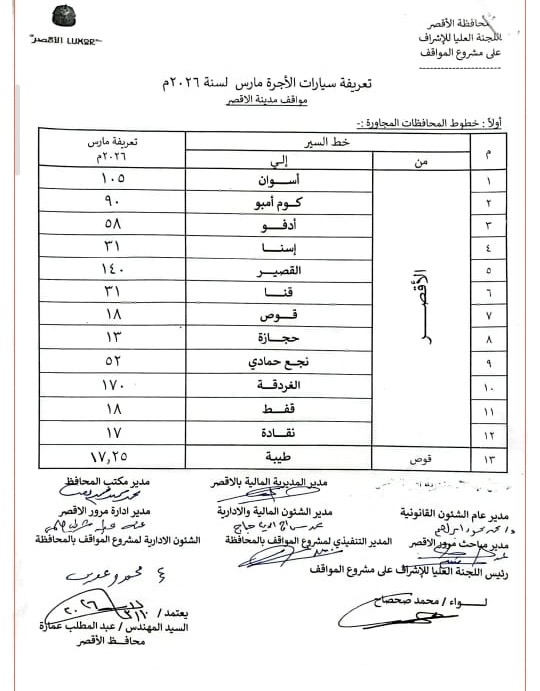 محافظة الأقصر
اللجنة العليا للإشراف
على مشروع المواقف
الأقصر LUXOR
تعريفة سيارات الأجرة مارس لسنة ٢٠٢٦م
مواقف مدينة الاقصر
أولاً : خطوط المحافظات المجاورة :-
م خط السير تعريفة مارس ٢٠٢٦م
من إلي
١ الأقصر أسوان ١٠٥
٢ كوم أمبو ٩٠
٣ أدفو ٥٨
٤ إسنا ٣١
٥ القصير ١٤٠
٦ قنا ٣١
٧ قوص ١٨
٨ حجازة ١٣
٩ نجع حمادي ٥٢
١٠ الغردقة ١٧٠
١١ قفط ١٨
١٢ نقادة ١٧
١٣ قوص طيبة ١٧,٢٥
مدير المديرية المالية بالاقصر مدير مكتب المحافظ
مدير عام الشئون القانونية مدير الشئون المالية والادارية مدير ادارة مرور الاقصر
مدير مباحث مرور الاقصر المدير التنفيذي لمشروع المواقف بالمحافظة الشئون الادارية لمشروع المواقف بالمحافظة
رئيس اللجنة العليا للإشراف على مشروع المواقف
لواء / محمد صحصاح
يعتمد /
السيد المهندس / عبد المطلب عمارة
محافظ الأقصر